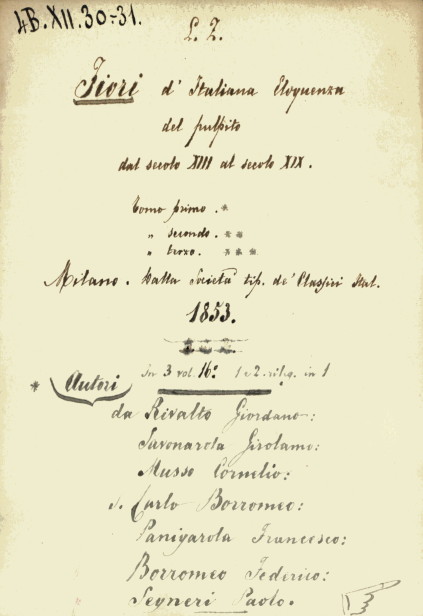 4B.XII.30-31.
L. Z.
Fiori d' Italiana Eloquenza
del pulpito
dal secolo XIII al secolo XIX.
Tomo primo . *
„ secondo . * *
„ terzo . * * *
Milano. Dalla Società tip. de' Classici Ital.
1853.
In 3 vol. 16º 1 e 2. rileg. in 1
* Autori
da Rivalto Giordano:
Savonarola Girolamo:
Musso Cornelio:
S. Carlo Borromeo:
Panigarola Francesco:
Borromeo Federico:
Segneri Paolo.